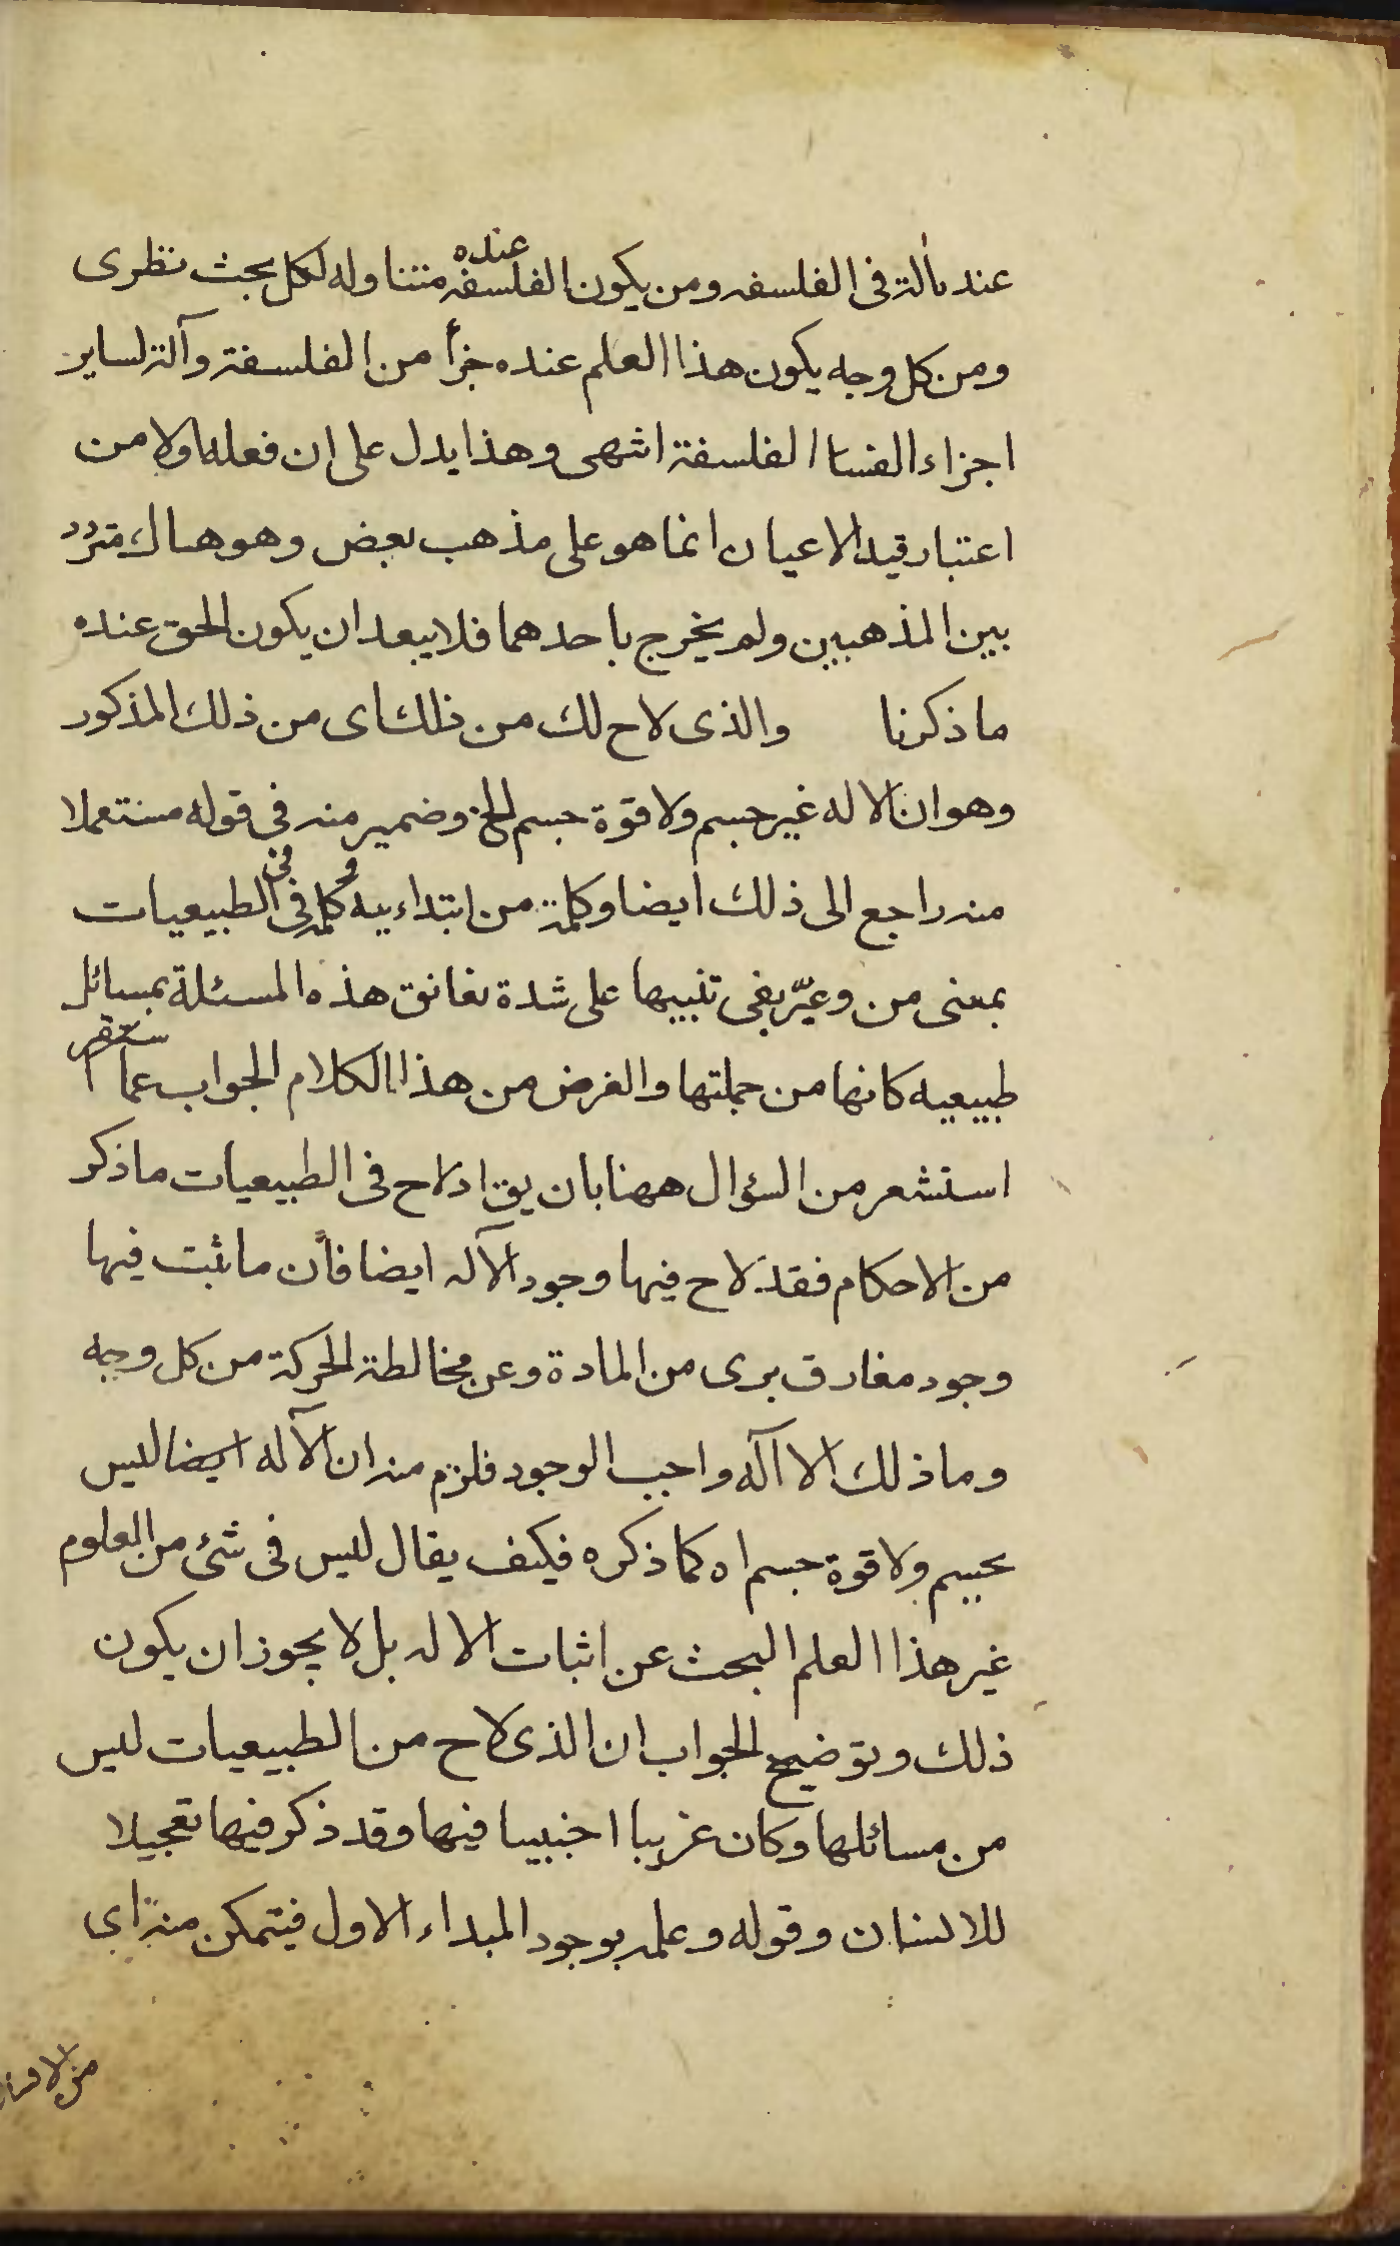 عنده آلة فى الفلسفه ومن يكون الفلسفه عنده متناوله لكل بحث نظرى
ومن كل وجه يكون هذا العلم عنده جزأ من الفلسفة وآلة لساير
اجزاء الفلسفة انتهى وهذا يدل على ان فعله اولا من
اعتبار قيد الاعيان انما هو على مذهب بعض وهو هناك متردد
بين المذهبين ولم يخرج باحدهما فلا يبعد ان يكون الحق عنده
ما ذكرنا والذى لاح لك من ذلك اى من ذلك المذكور
وهو ان الاله غير جسم ولا قوة جسم الخ وضمير منه فى قوله مستعملا
منه راجع الى ذلك ايضا وكلمة من ابتداءيه وكلمة فى فى الطبيعيات
بمعنى من وعبّر بفى تنبيها على شدة تعانق هذه المسئلة بمسائل
طبيعيه كانها من جملتها والغرض من هذا الكلام الجواب عما
استشعر من السؤال ههنا بان يق اذ لاح فى الطبيعيات ما ذكر
من الاحكام فقد لاح فيها وجود الآله ايضا فأن ما ثبت فيها
وجود مفارق برى من المادة وعن مخالطة الحركة من كل وجه
وما ذلك الا اآله واجب الوجود فلزم منه ان الآله ايضا ليس
بجسم ولا قوة جسم اه كما ذكره فكيف يقال ليس فى شئ من العلوم
غير هذا العلم البحث عن اثبات الاله بل لا يجوز ان يكون
ذلك وتوضيح الجواب ان الذى لاح من الطبيعيات ليس
من مسائلها وكان غريبا اجنبيا فيها وقد ذكر فيها تعجيلا
للانسان وقوله وعلمه بوجود المبداء الاول فيتمكن منه اى